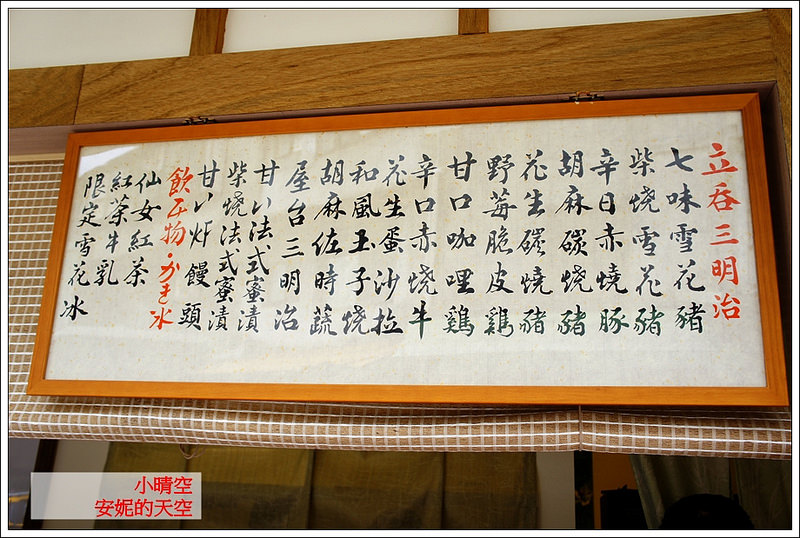 立吞三明治
七味雪花豬
柴燒雪花豬
辛日赤燒豚
胡麻碳燒豬
花生碳燒豬
野莓脆皮鷄
甘口咖哩鷄
辛口赤燒牛
花生蛋沙拉
和風玉子燒
胡麻佐時蔬
屋台三明治
甘い法式蜜漬
柴燒法式蜜漬
甘い炸饅頭
飲み物・かき氷
仙女紅茶
紅茶牛乳
限定雪花冰
小晴空
安妮的天空